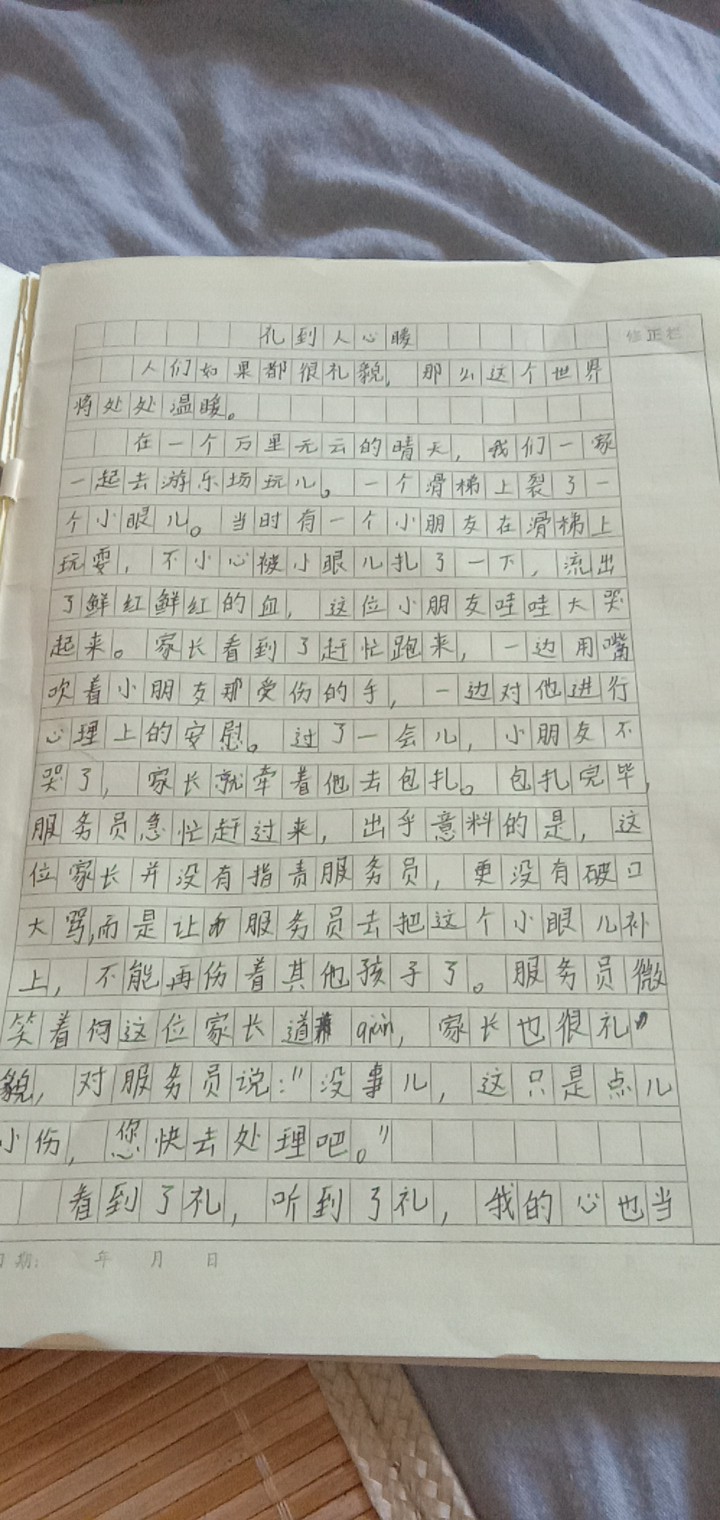 礼到人心暖
修正栏
人们如果都很礼貌，那么这个世界
将处处温暖。
在一个万里无云的晴天，我们一家
一起去游乐场玩儿。一个滑梯上裂了一
个小眼儿。当时有一个小朋友在滑梯上
玩耍，不小心被小眼儿扎了一下，流出
了鲜红鲜红的血，这位小朋友哇哇大哭
起来。家长看到了赶忙跑来，一边用嘴
吹着小朋友那受伤的手，一边对他进行
心理上的安慰。过了一会儿，小朋友不
哭了，家长就牵着他去包扎。包扎完毕，
服务员急忙赶过来，出乎意料的是，这
位家长并没有指责服务员，更没有破口
大骂，而是让服务员去把这个小眼儿补
上，不能再伤着其他孩子了。服务员微
笑着向这位家长道qiàn，家长也很礼
貌，对服务员说："没事儿，这只是点儿
小伤，您快去处理吧。"
看到了礼，听到了礼，我的心也当
日期： 年 月 日